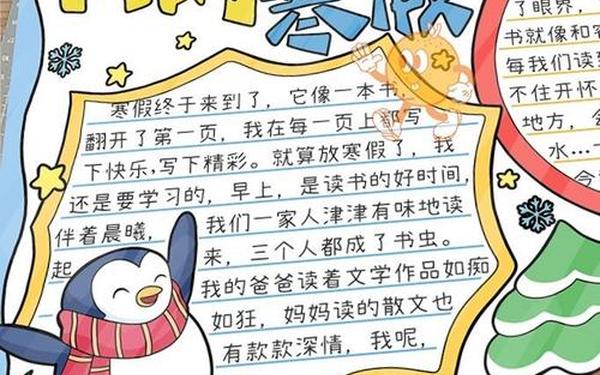 寒假
寒假终于来到了，它像一本书，
翻开了第一页，我在每一页上都写
下快乐,写下精彩。就算放寒假了，我
还是要学习的，早上，是读书的好时间，
伴着晨曦，我们一家人津津有味地读
起来，三个人都成了书虫。
我的爸爸读着文学作品如痴
如狂，妈妈读的散文也
有款款深情，我呢，
了眼界，
书就像和
每我们读到
不住开怀
地方，
水…